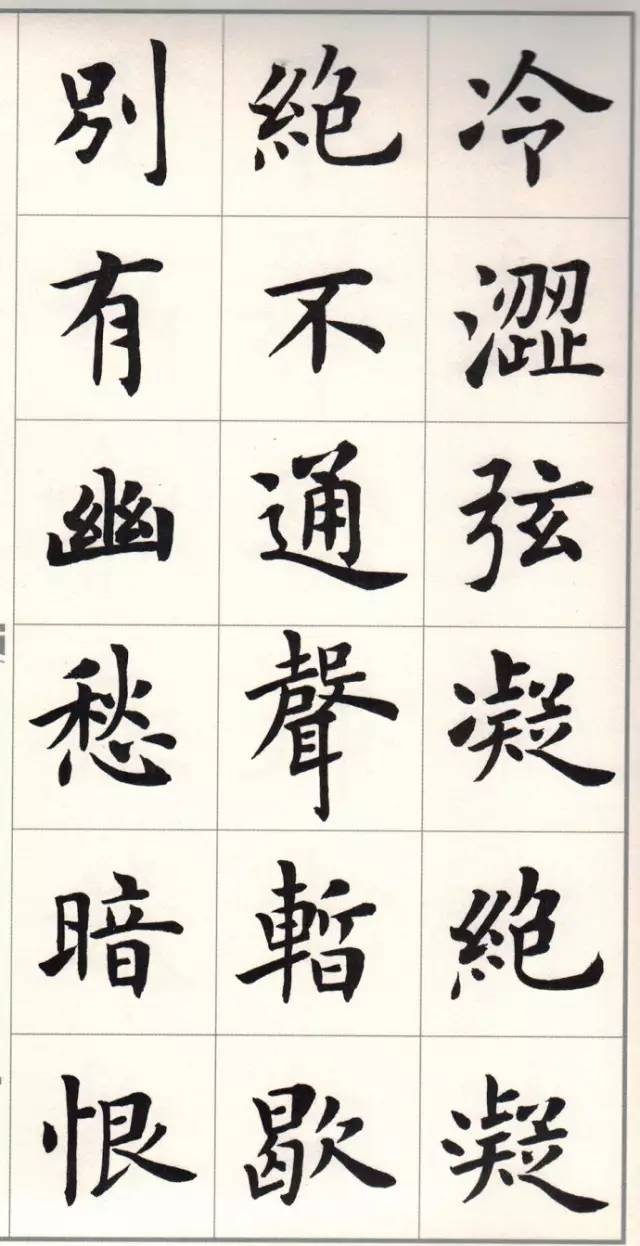 冷澀弦凝絕凝
絕不通聲暫歇
別有幽愁暗恨